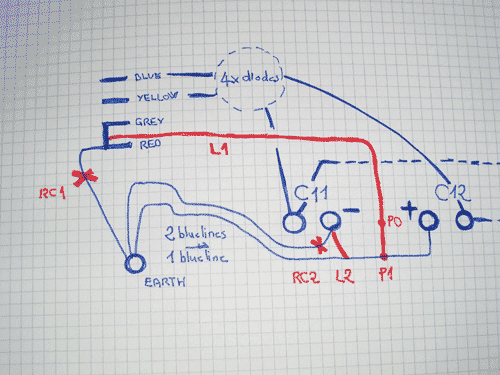 BLUE
4x diodes
YELLOW
GREY
RED
L1
RC1
C11
C12
-
+
P0
2 bluelines
1 blueline
RC2
L2
P1
EARTH